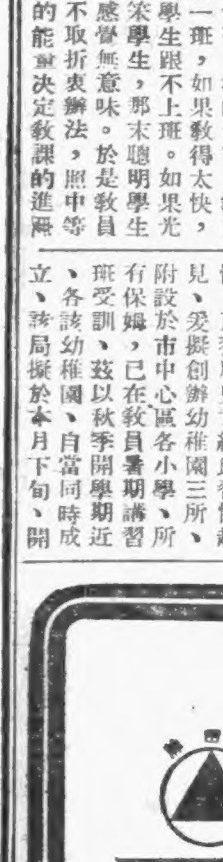 一班，如果敎得太快，
學生跟不上班。如果光
笨學生，那末聰明學生
感覺無意味。於是敎員
不取折衷辦法，照中等
的能量決定敎課的進
見、爰擬創辦幼稚園三所、
附設於市中心區各小學、所
有保姆，已在敎員暑期講習
班受訓、茲以秋季開學期近
、各該幼稚園、自當同時成
立、該局擬於本月下旬、開